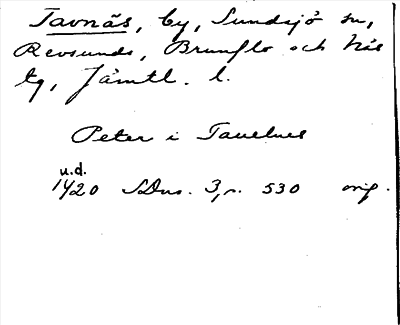 Tavnäs, by, Sundsjö sn,
Revsunds, Brunflo och Näs
tg, Jämtl. l.
Peter i Tauelnes
u.d.
1420 SDns. 3, s. 530 orig.